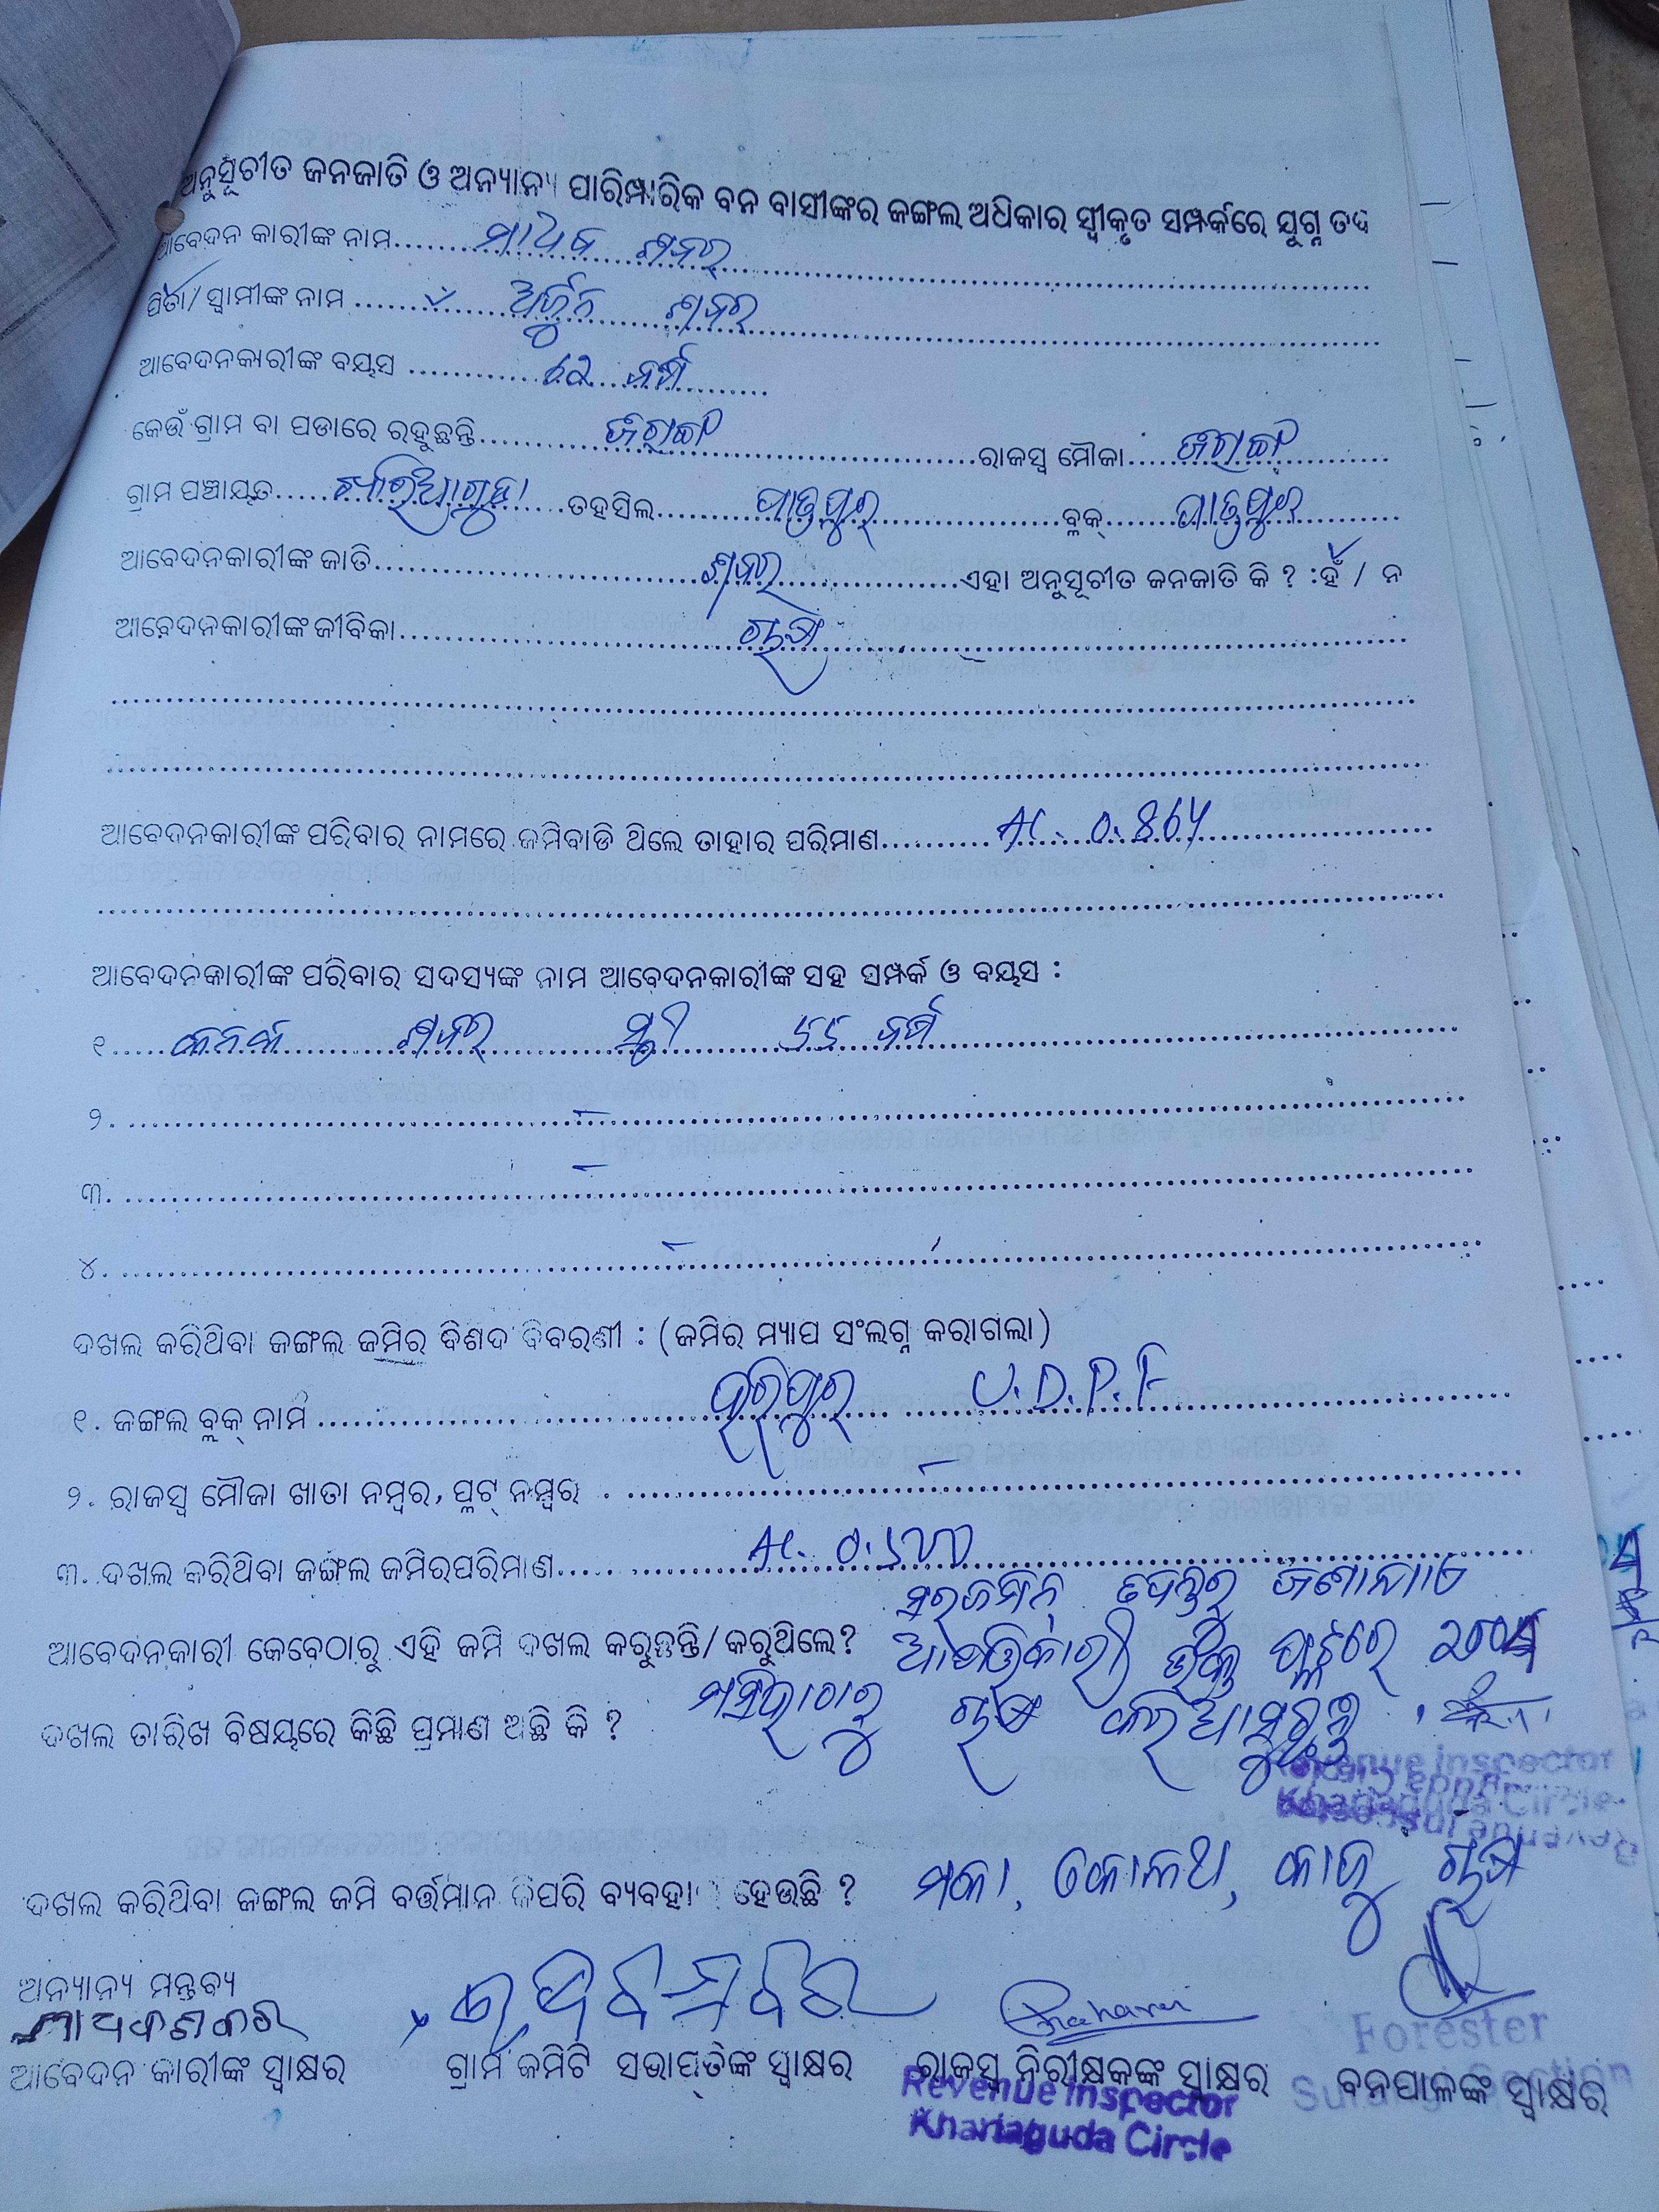 ଅନୁସୂଚୀତ ଜନଜାତି ଓ ଅନ୍ୟାନ୍ୟ ପାରିମ୍ପାରିକ ବନ ବାସୀଙ୍କର ଜଙ୍ଗଲ ଅଧିକାର ସ୍ୱୀକୃତ ସମ୍ପର୍କରେ ଯୁଗ୍ନ ତଦ
ଆବେଦନ କାରୀଙ୍କ ନାମ..... ମାଧବ ଶବର
ପିତା/ସ୍ୱାମୀଙ୍କ ନାମ ..... ଅର୍ଜୁନ ଶବର
ଆବେଦନକାରୀଙ୍କ ବୟସ ..... ୬୨ ବର୍ଷ
କେଉଁ ଗ୍ରାମ ବା ପଡାରେ ରହୁଛନ୍ତି..... ରାଜସ୍ୱ ମୌଜା.....
ଗ୍ରାମ ପଞ୍ଚାୟତ..... ଖାରିଆଗୁଡା ତହସିଲ..... ପାତ୍ରପୁର ବ୍ଲକ୍..... ପାତ୍ରପୁର
ଆବେଦନକାରୀଙ୍କ ଜାତି..... ଶବର ଏହା ଅନୁସୂଚୀତ ଜନଜାତି କି ? :ହଁ / ନ
ଆବେଦନକାରୀଙ୍କ ଜୀବିକା..... ଚାଷ
ଆବେଦନକାରୀଙ୍କ ପରିବାର ନାମରେ ଜମିବାଡି ଥିଲେ ତାହାର ପରିମାଣ..... AC. 0.864
ଆବେଦନକାରୀଙ୍କ ପରିବାର ସଦସ୍ୟଙ୍କ ନାମ ଆବେଦନକାରୀଙ୍କ ସହ ସମ୍ପର୍କ ଓ ବୟସ :
୧..... ଶବର ସ୍ତ୍ରୀ ୫୫ ବର୍ଷ
୨. ..... –
୩. ..... –
୪. ..... –
ଦଖଲ କରିଥିବା ଜଙ୍ଗଲ ଜମିର ବିଶଦ ବିବରଣୀ : (ଜମିର ମ୍ୟାପ ସଂଲଗ୍ନ କରାଗଲା)
୧. ଜଙ୍ଗଲ ବ୍ଲକ୍ ନାମ ..... ହରିପୁର U.D.P.F
୨. ରାଜସ୍ୱ ମୌଜା ଖାତା ନମ୍ବର, ପ୍ଳଟ୍ ନମ୍ବର ..... –
୩. ଦଖଲ କରିଥିବା ଜଙ୍ଗଲ ଜମିରପରିମାଣ..... AC. 0.
ସରଜମିନ୍ ତଦନ୍ତରୁ ଜଣାଯାଏ
ଆବେଦନକାରୀ କେବେଠାରୁ ଏହି ଜମି ଦଖଲ କରୁଛନ୍ତି/କରୁଥିଲେ? ଉକ୍ତ ପ୍ଲଟରେ
ଦଖଲ ତାରିଖ ବିଷୟରେ କିଛି ପ୍ରମାଣ ଅଛି କି ? ମସିହାଠାରୁ ଚାଷ କରିଆସୁଛନ୍ତି
Revenue Inspector
Khariaguda Circle
ଦଖଲ କରିଥିବା ଜଙ୍ଗଲ ଜମି ବର୍ତ୍ତମାନ କିପରି ବ୍ୟବହାର ହେଉଛି ? ମକା, କୋଳଥ, କାଜୁ ଚାଷ
ଅନ୍ୟାନ୍ୟ ମନ୍ତବ୍ୟ
ଆବେଦନ କାରୀଙ୍କ ସ୍ୱାକ୍ଷର ଗ୍ରାମ କମିଟି ସଭାପତିଙ୍କ ସ୍ୱାକ୍ଷର ରାଜସ୍ୱ ନିରୀକ୍ଷକଙ୍କ ସ୍ୱାକ୍ଷର ବନପାଳଙ୍କ ସ୍ୱାକ୍ଷର
Forester
Section
Revenue Inspector
Khariaguda Circle